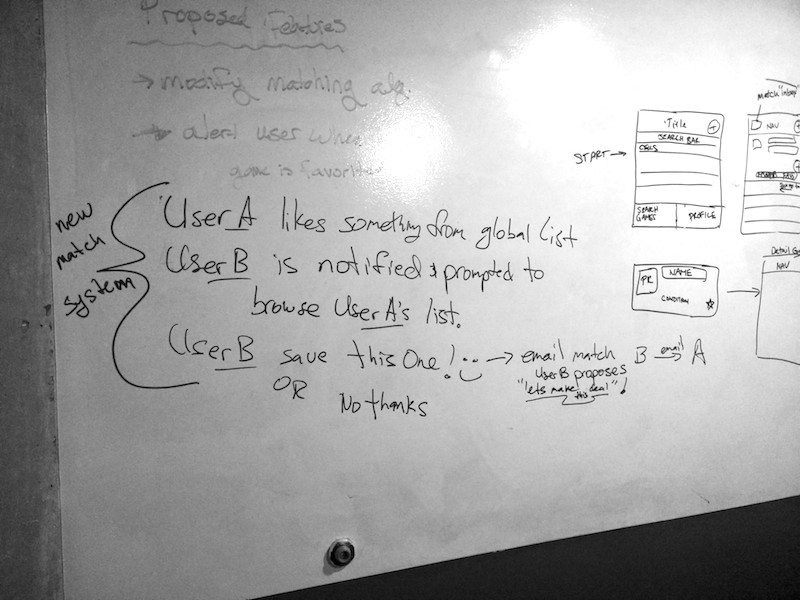 Proposed Features
→ modify matching alg.
→ alert user when
game is favorited
new
match
system
User A likes something from global list
User B is notified & prompted to
browse User A's list.
User B save this one! → email match B email→ A
OR
User B proposes
"lets make this deal"!
No thanks
START →
Title
+
SEARCH BAR
SEARCH GAMES
PROFILE
match "inbox"
NAV
+
PR
NAME
CONDITION
NAV